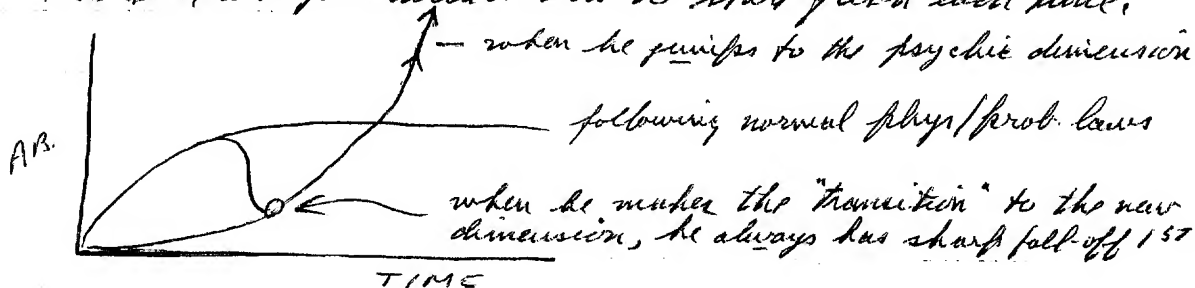 — when he jumps to the psychic dimension
following normal phys/prob. laws
AB.
when he makes the "transition" to the new
dimension, he always has sharp fall-off 1ST
TIME